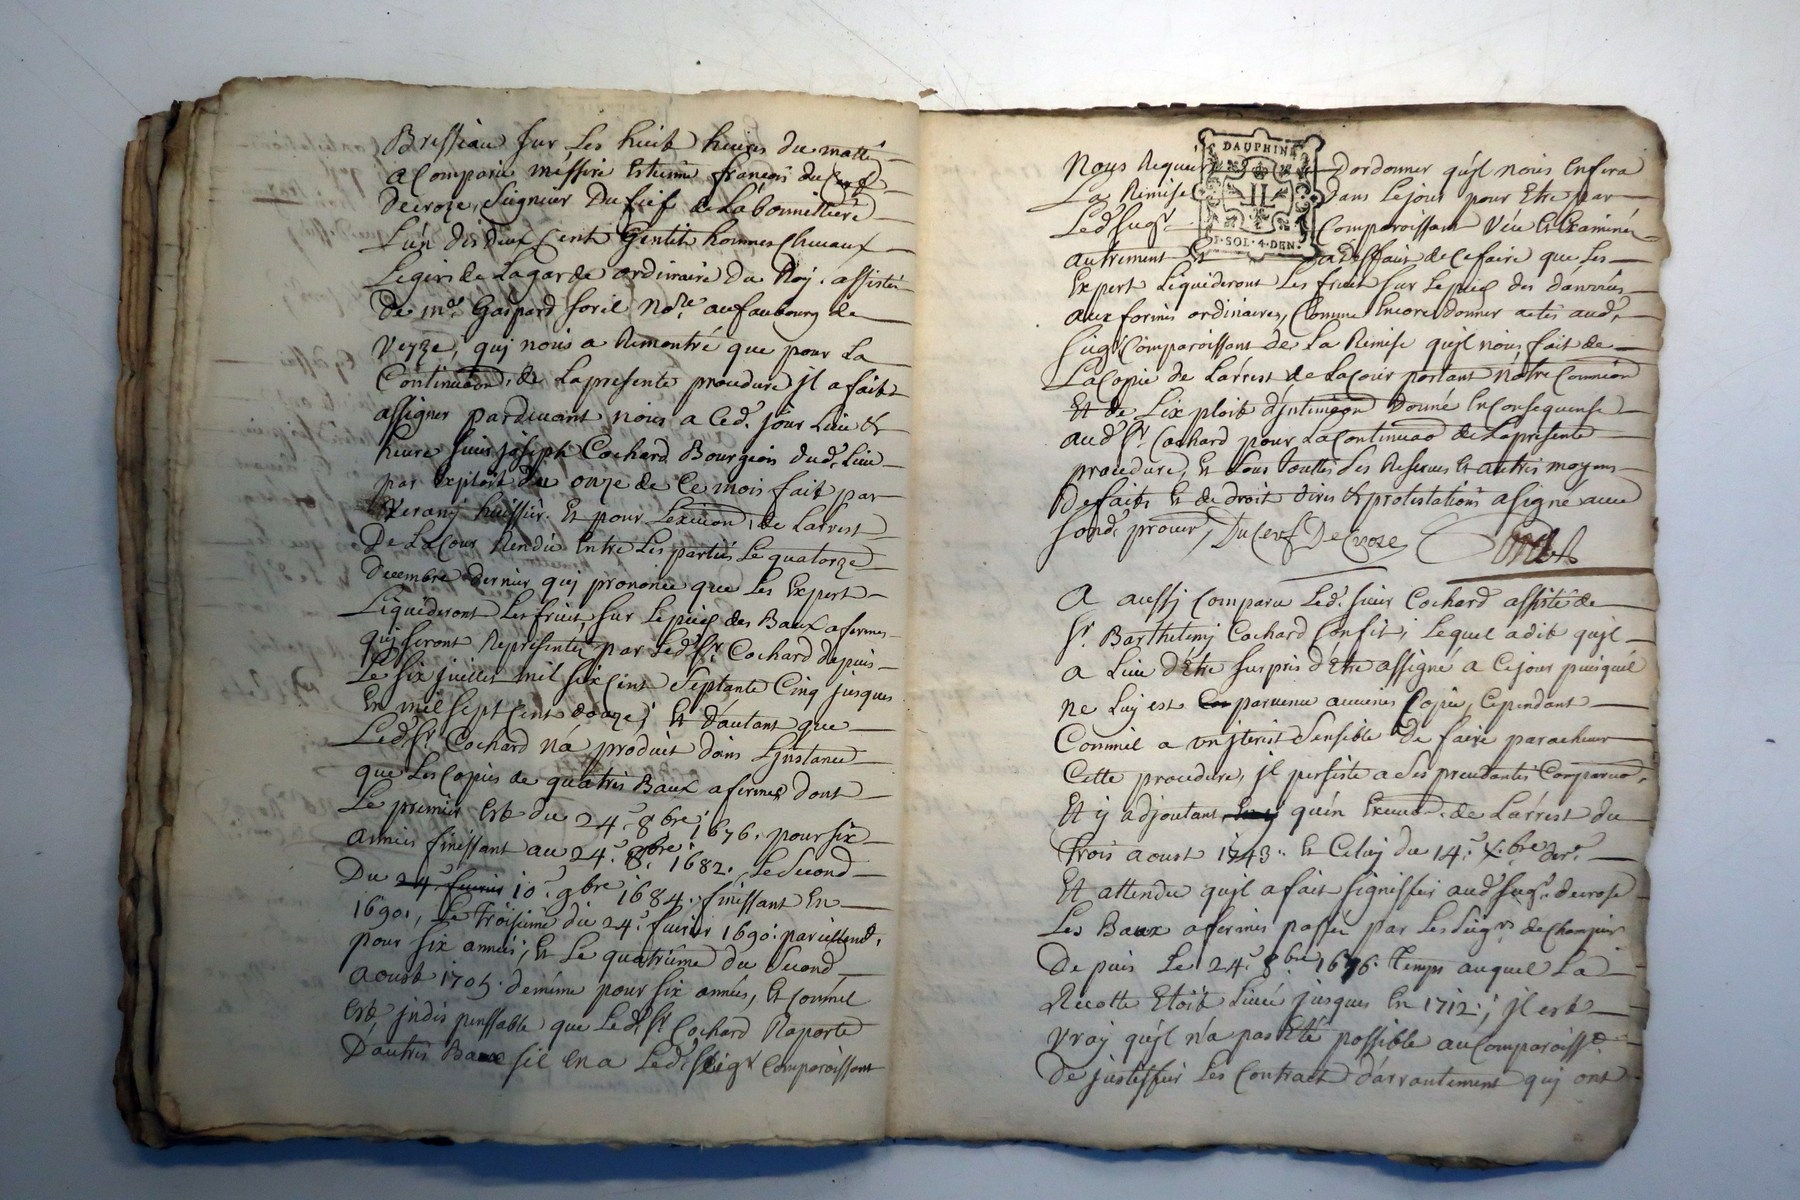 Bressieu sur les huit heures du mattin
a Comparu messire Estienne francois duCerf
Decroze, Seigneur Du fief de Labonnettiere
L'un des deux Cents Gentils hommes Chevaux
Legers de Lagarde ordinaire Du Roy. assisté
De me. Gaspard foril Nore. aufaubourg de
Veyze, quj nous a Remontré que pour La
Continuaon. de Lapresente procedure jl a fait
assigner pardevant nous a Ced. jour Lieu &
heure sieur joseph Cochard Bourgeois dud. Lieu
par Exploit du onze de Ce mois fait par
Verany huissier. Et pour Lexeuon, de Larrest
De LaCour Rendu Entre Les parties Le quatorze
Decembre dernier quj prononce que Les Expert
Liquideront Lesfruits sur Lepied des Baux afermes
quj seront Representes par Led. Sr. Cochard depuis
Le six juillet mil six cent Septante Cinq jusques
En mil sept Cent douze; Et d'autant que
Led. Sr. Cochard n'a produit dans Ljnstance
que Les Copies de quatres Baux afermes dont
Le premier Est du 24e. 8bre. 1676. pour six
années finissant au 24e. 8bre. 1682. Le Second
Du 24e. fevrier 10e. 9bre. 1684. finissant En
1690., Le Troisieme du 24e. fevrier 1690. pareillemt.
pour six années; Et Le quatrieme du Second
aoust 1705. deméme pour six années, Et Comme jl
Est jndispenssable que Led. Sr. Cochard Raporte
D'autres Baux sil En a Led. Seigr. Comparoissant
DAUPHINÉ
1·SOL·4·DEN.
Nous Requiert D'ordonner qu'jl nous Enfera
La Remise Dans Lejour pour Etre par
Led. Seigr. Comparoissant Veu Et Examiné
autrement Et a Deffaut de Cefaire que Les
Expert Liquideront Les fruits sur Lepied des danrées
aux formes ordinaires, Comme Encore donner actes aud.
Seigr. Comparoissant de La Remise qu'jl nous fait de
LaCopie de Larrest de LaCour portant nôtre Commion
Et de L'Exploit d'jntimaon Donné EnConsequense
aud. Sr. Cochard pour LaContinuao de Lapresente
procedure, Et Sous Touttes Les Reserves Et autres moyens
Defaits Et de Droit dires & protestations a signé avec
Sond. procur, DuCerf DeCroze
A aussj Comparu Led. sieur Cochard assisté de
Sr. Barthelemj Cochard Son fils; Lequel a dit qu'jl
a Lieu d'Etre surpris d'Etre assigné a Cejour puisqu'jl
ne Luy est parvenu aucunes Copie, Cependant
Comme jl a un jterest Sensible De faire parachever
Cette procedure, jl persiste a Ses precedantes Comparuo.
Et y adjoutant qu'en Exeuo. de Larrest du
Trois aoust 1743. Et Celuj du 14e. Xbre der.
Et attendu qu'jl a fait signiffier aud. Seigr. decrose
Les Baux afermes passés par Les Seigrs. de Champier
Depuis Le 24e. 8bre. 1676. Temps auquel La
Recolte Etoit Levée jusques En 1712.; jl est
Vray qu'jl n'a pas Eté possible au Comparoisst.
De justiffier Les Contract d'arrantement quj ont